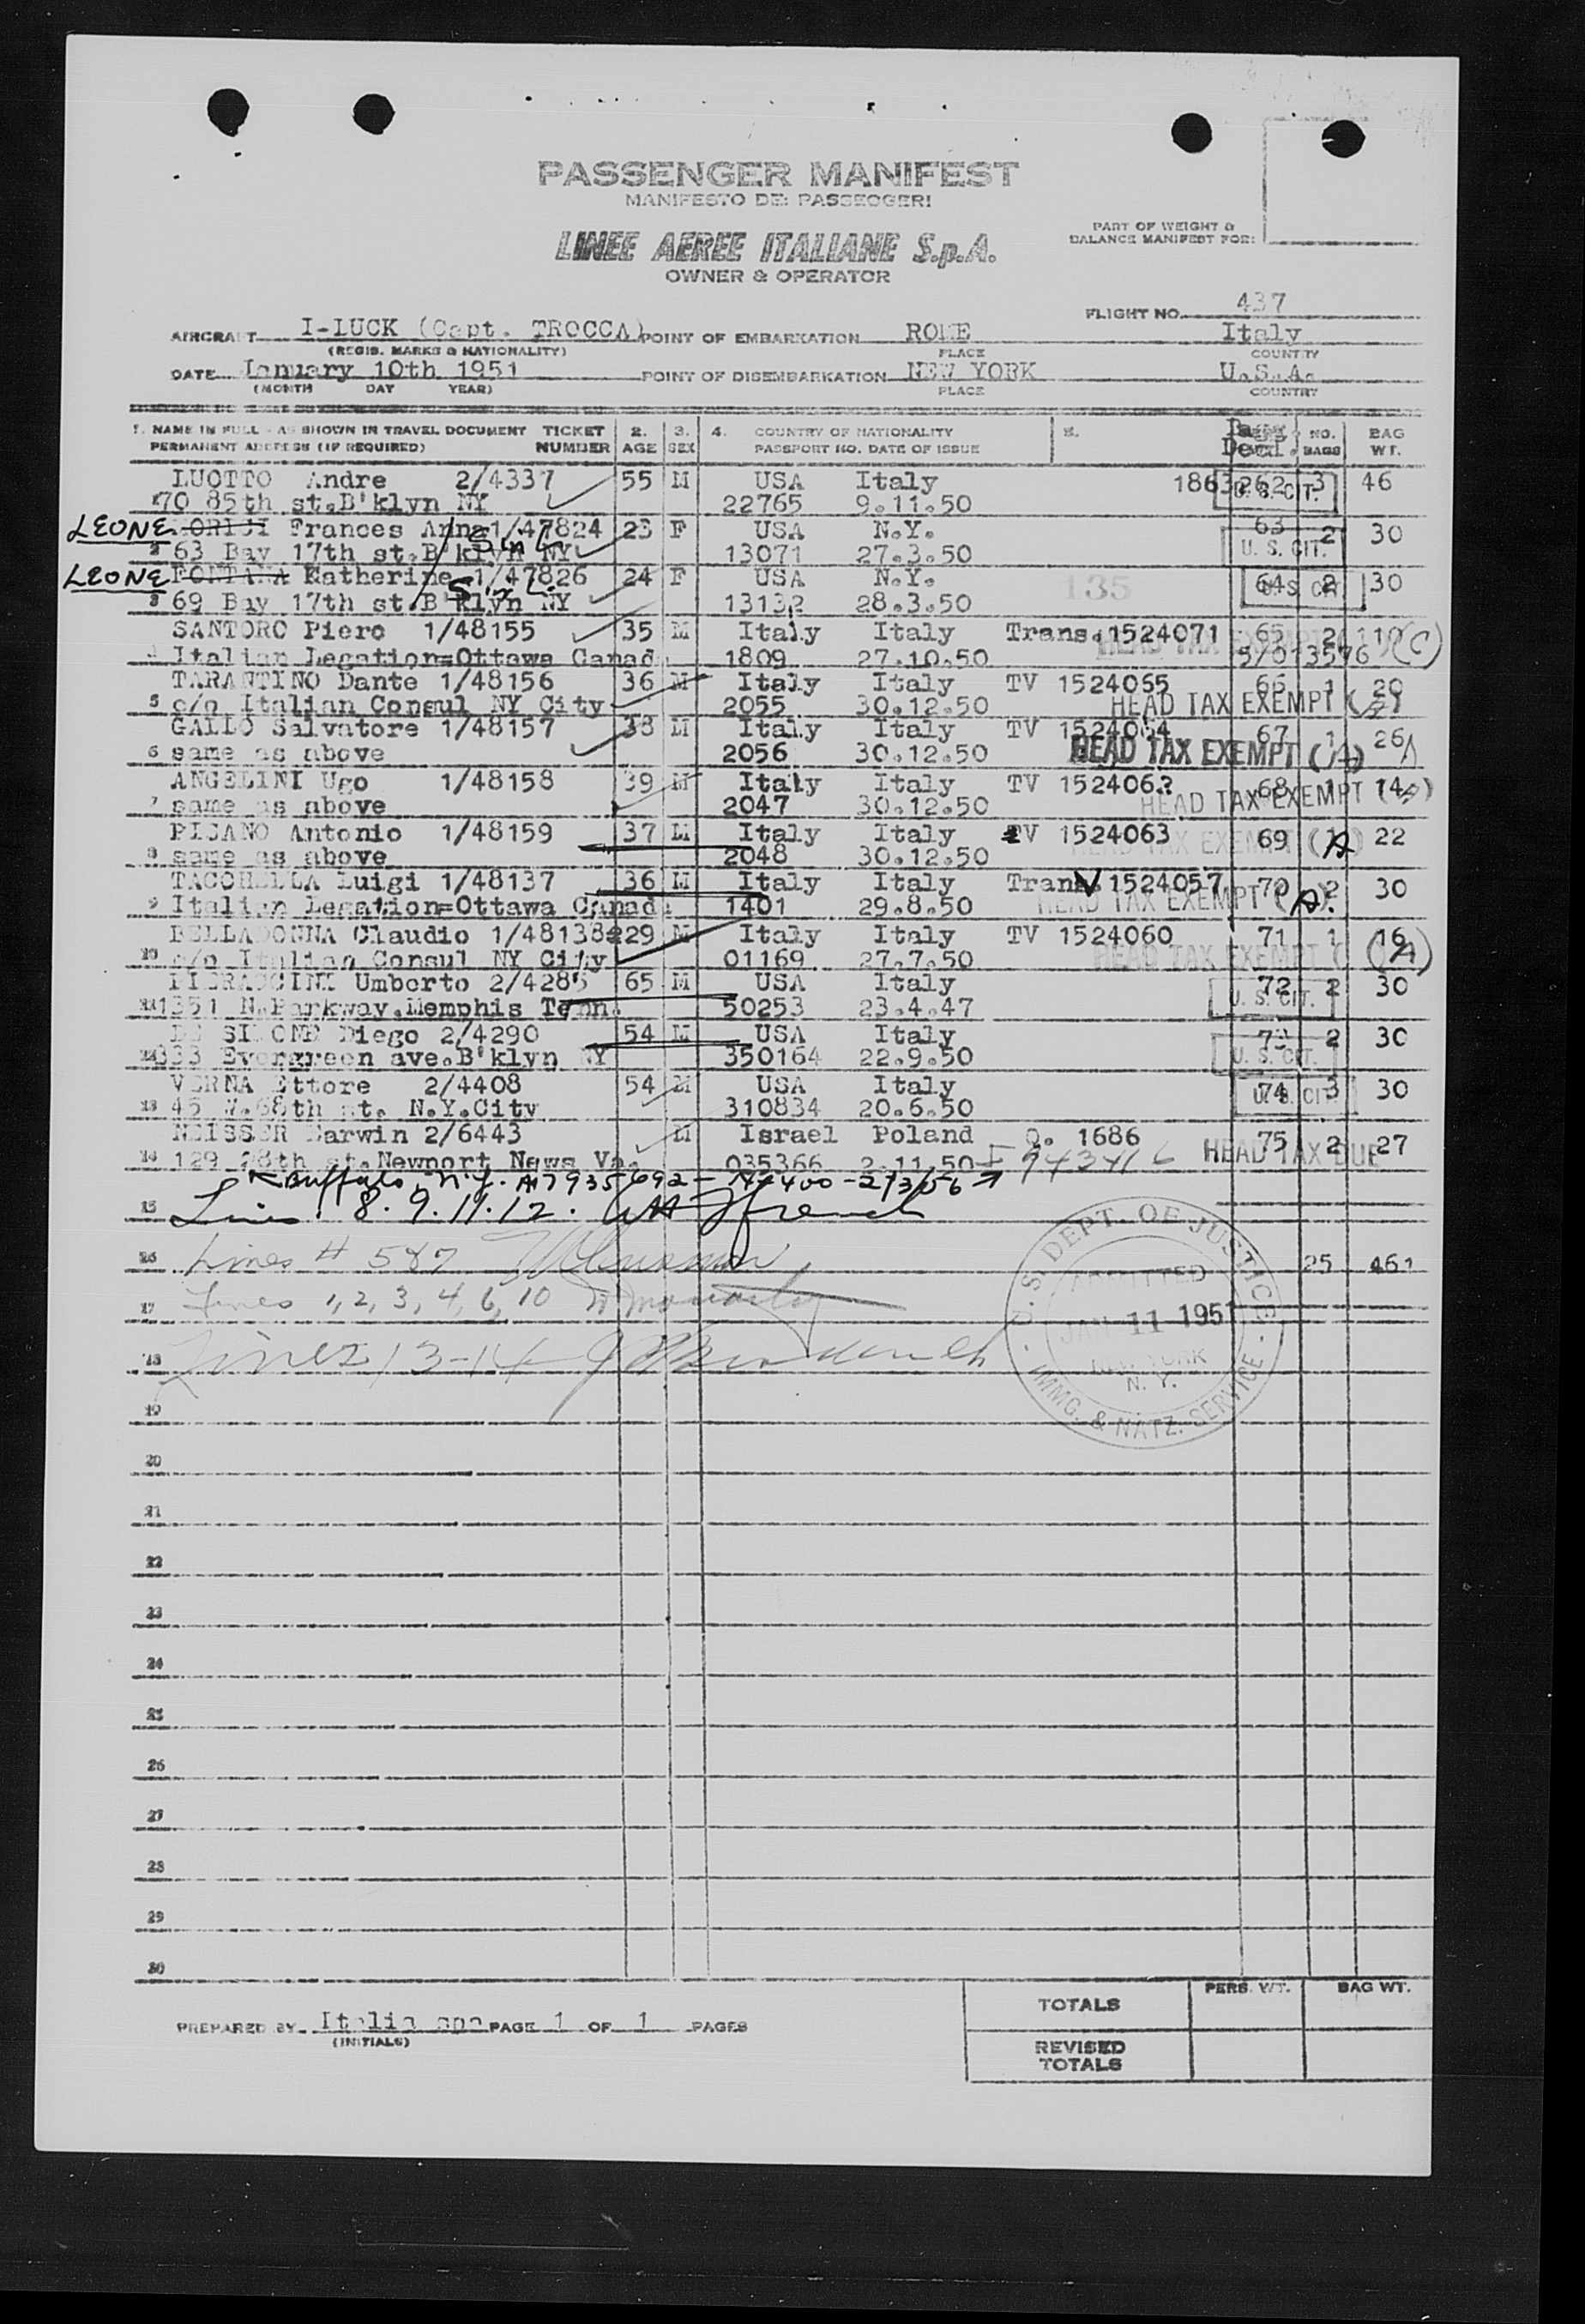 PASSENGER MANIFEST
MANIFESTO DEI PASSEGGERI
LINEE AEREE ITALIANE S.p.A.
OWNER & OPERATOR
PART OF WEIGHT &
BALANCE MANIFEST FOR:
FLIGHT NO. 437
AIRCRAFT I-LUCK (Capt. TROCCA) POINT OF EMBARKATION ROME Italy
(REGIS. MARKS & NATIONALITY) PLACE COUNTRY
DATE January 10th 1951 POINT OF DISEMBARKATION NEW YORK U.S.A.
(MONTH DAY YEAR) PLACE COUNTRY
1. NAME IN FULL - AS SHOWN IN TRAVEL DOCUMENT TICKET 2. 3. 4. COUNTRY OF NATIONALITY 5. Bagg. NO. BAG
PERMANENT ADDRESS (IF REQUIRED) NUMBER AGE SEX PASSPORT NO. DATE OF ISSUE Decl. BAGS WT.
LUOTTO Andre 2/4337 55 M USA Italy 1863262 3 46
1 70 85th st.B'klyn NY 22765 9.11.50 U. S. CIT.
LEONE Frances Ann 1/47824 23 F USA N.Y. 63 2 30
2 63 Bay 17th st.B'klyn NY 13071 27.3.50 U. S. CIT.
LEONE FONTANA Katherine 1/47826 24 F USA N.Y. 135 64 2 30
3 69 Bay 17th st.B'klyn NY 13132 28.3.50 U. S. CIT.
SANTORO Piero 1/48155 35 M Italy Italy Trans. 1524071 65 2 110 (C)
4 Italian Legation=Ottawa Canad 1809 27.10.50 HEAD TAX EXEMPT 5/0 3576
TARANTINO Dante 1/48156 36 M Italy Italy TV 1524065 66 1 20
5 c/o Italian Consul NY City 2055 30.12.50 HEAD TAX EXEMPT
GALLO Salvatore 1/48157 38 M Italy Italy TV 1524064 67 1 26
6 same as above 2056 30.12.50 HEAD TAX EXEMPT (A)
ANGELINI Ugo 1/48158 39 M Italy Italy TV 152406? 68 1 14
7 same as above 2047 30.12.50 HEAD TAX EXEMPT (A)
PIJANO Antonio 1/48159 37 M Italy Italy TV 1524063 69 1 22
8 same as above 2048 30.12.50 HEAD TAX EXEMPT (A)
TACCHELLA Luigi 1/48137 36 M Italy Italy Trans 1524057 70 2 30
9 Italian Legation=Ottawa Canad 1401 29.8.50 HEAD TAX EXEMPT (A)
BELLADONNA Claudio 1/48138 29 M Italy Italy TV 1524060 71 1 16
10 c/o Italian Consul NY City 01169 27.7.50 HEAD TAX EXEMPT (A)
PIERACCINI Umberto 2/4285 65 M USA Italy 72 2 30
11 1351 N.Parkway.Memphis Tenn. 50253 23.4.47 U. S. CIT.
DE SIMONE Diego 2/4290 54 M USA Italy 73 2 30
12 333 Evergreen ave.B'klyn NY 350164 22.9.50 U. S. CIT.
VERNA Ettore 2/4408 54 M USA Italy 74 3 30
13 45 W.68th st. N.Y.City 310834 20.6.50 U. S. CIT.
NEISSER Darwin 2/6443 M Israel Poland Q. 1686 75 2 27
14 129 28th st.Newport News Va. 035366 2.11.50 I 943416 HEAD TAX DUE
Buffalo, N.Y. A7935692 - 2/3/56
15 Lines 8. 9. 11. 12. French
16 Lines # 5 & 7 25 461
17 Lines 1, 2, 3, 4, 6, 10
18 Lines 13-14
U.S. DEPT. OF JUSTICE
ADMITTED
JAN 11 1951
NEW YORK
N. Y.
IMMG. & NATZ. SERVICE
19
20
21
22
23
24
25
26
27
28
29
30
PERS. WT. BAG WT.
TOTALS
PREPARED BY Italia spa PAGE 1 OF 1 PAGES
(INITIALS)
REVISED
TOTALS